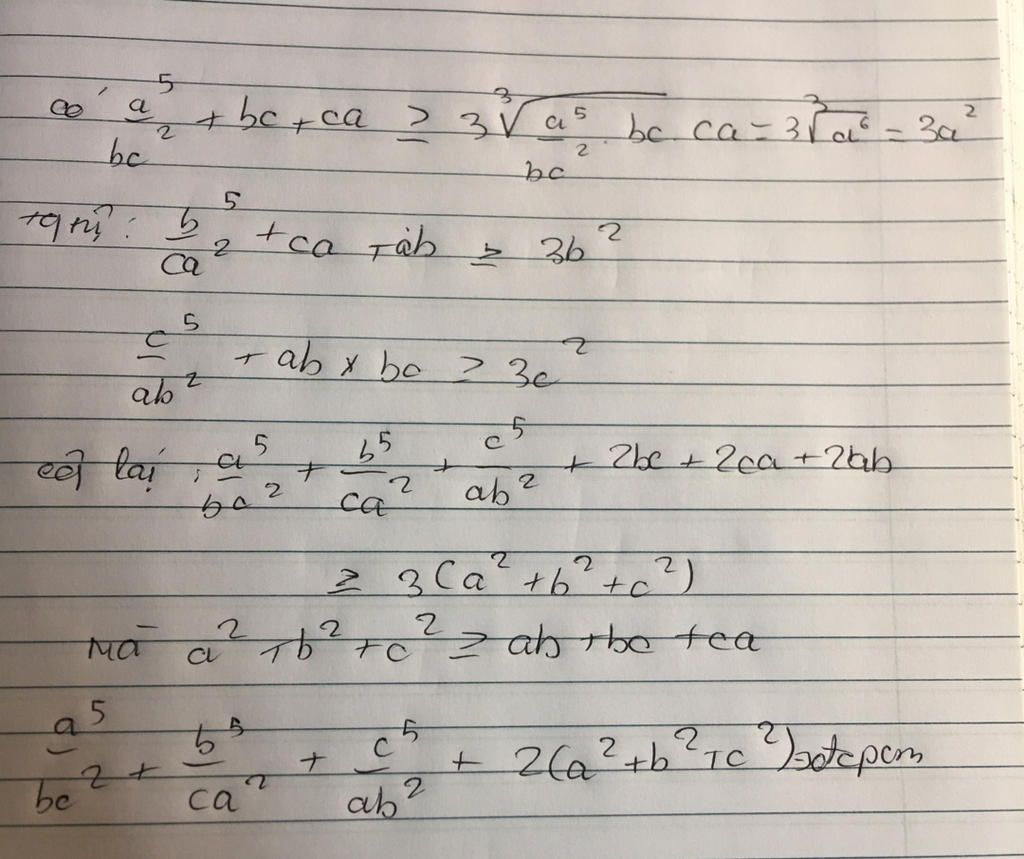 có a^5/bc^2 + bc + ca ≥ 3∛(a^5/bc^2 . bc . ca) = 3∛(a^6) = 3a^2
tg tự : b^5/ca^2 + ca + ab ≥ 3b^2
c^5/ab^2 + ab + bc ≥ 3c^2
cộg lại : a^5/bc^2 + b^5/ca^2 + c^5/ab^2 + 2bc + 2ca + 2ab
≥ 3(a^2 + b^2 + c^2)
mà a^2 + b^2 + c^2 ≥ ab + bc + ca
a^5/bc^2 + b^5/ca^2 + c^5/ab^2 + 2(a^2 + b^2 + c^2)